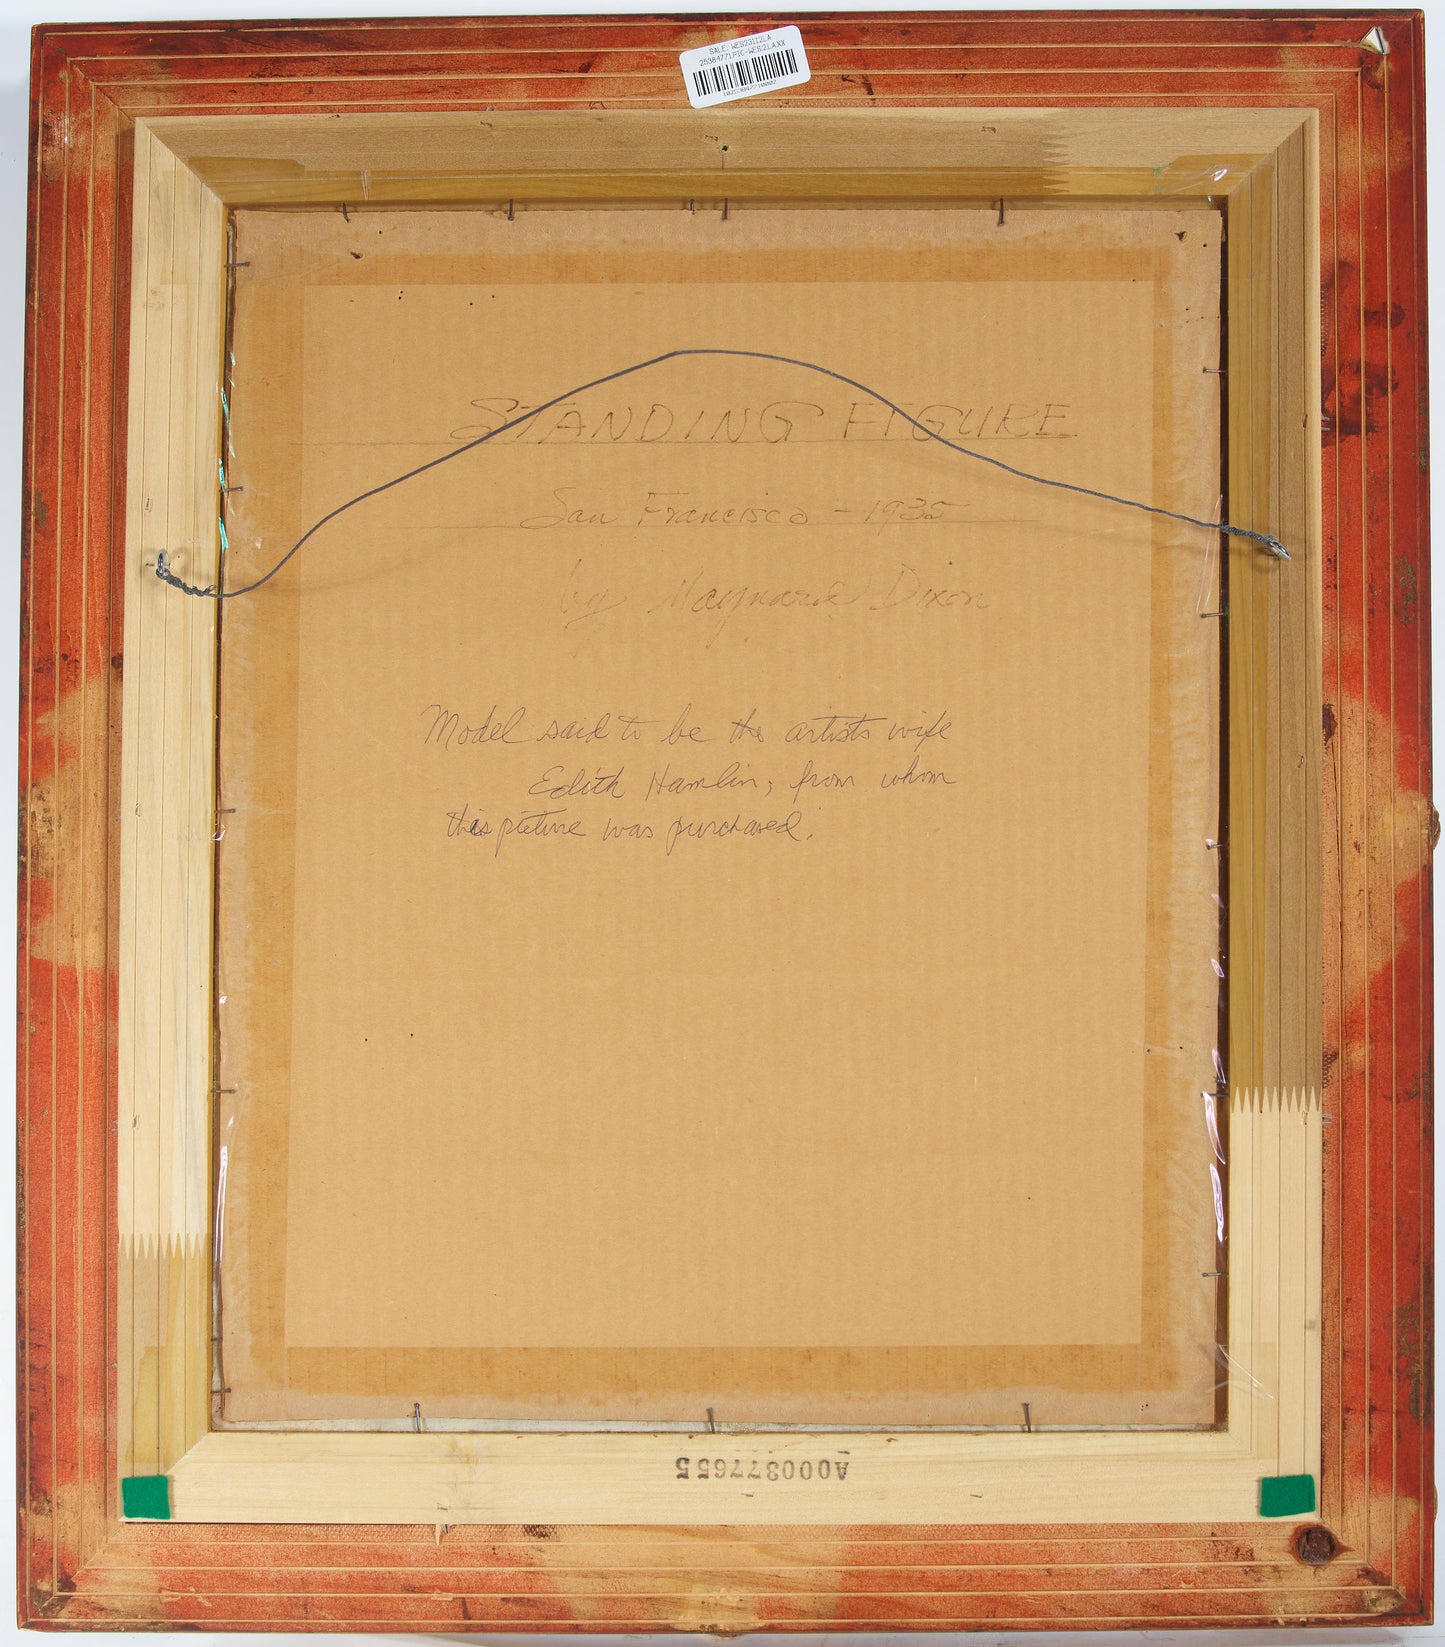 SALE: WES23112LA
25384771PIC-WES:2LAXX
STANDING FIGURE
San Francisco - 1935
by Maynard Dixon
Model said to be the artists wife
Edith Hamlin, from whom
this picture was purchased.
A000377655